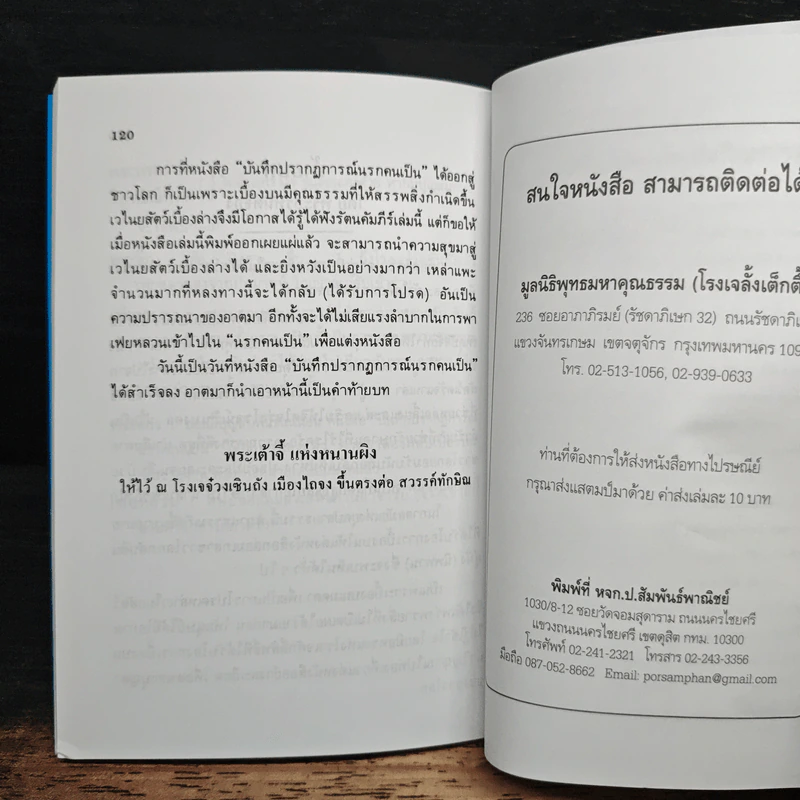 120
การที่หนังสือ “บันทึกปรากฏการณ์นรกคนเป็น” ได้ออกสู่
ชาวโลก ก็เป็นเพราะเบื้องบนมีคุณธรรมที่ให้สรรพสิ่งกำเนิดขึ้น
เวไนยสัตว์เบื้องล่างจึงมีโอกาสได้รู้ได้ฟังรัตนคัมภีร์เล่มนี้ แต่ก็ขอให้
เมื่อหนังสือเล่มนี้พิมพ์ออกเผยแผ่แล้ว จะสามารถนำความสุขมาสู่
เวไนยสัตว์เบื้องล่างได้ และยิ่งหวังเป็นอย่างมากว่า เหล่าแพะ
จำนวนมากที่หลงทางนี้จะได้กลับ (ได้รับการโปรด) อันเป็น
ความปรารถนาของอาตมา อีกทั้งจะได้ไม่เสียแรงลำบากในการพา
เฟยหลวนเข้าไปใน “นรกคนเป็น” เพื่อแต่งหนังสือ
วันนี้เป็นวันที่หนังสือ “บันทึกปรากฏการณ์นรกคนเป็น”
ได้สำเร็จลง อาตมาก็นำเอาหน้านี้เป็นคำท้ายบท
พระเต้าจี้ แห่งหนานผิง
ให้ไว้ ณ โรงเจจ๋วงเซินถัง เมืองไถจง ขึ้นตรงต่อ สวรรค์ทักษิณ
สนใจหนังสือ สามารถติดต่อได้
มูลนิธิพุทธมหาคุณธรรม (โรงเจลั้งเต็กตั๊
236 ซอยอาภาภิรมย์ (รัชดาภิเษก 32) ถนนรัชดาภิเ
แขวงจันทรเกษม เขตจตุจักร กรุงเทพมหานคร 109
โทร. 02-513-1056, 02-939-0633
ท่านที่ต้องการให้ส่งหนังสือทางไปรษณีย์
กรุณาส่งแสตมป์มาด้วย ค่าส่งเล่มละ 10 บาท
พิมพ์ที่ หจก.ป.สัมพันธ์พาณิชย์
1030/8-12 ซอยวัดจอมสุดาราม ถนนนครไชยศรี
แขวงถนนนครไชยศรี เขตดุสิต กทม. 10300
โทรศัพท์ 02-241-2321 โทรสาร 02-243-3356
มือถือ 087-052-8662 Email: porsamphan@gmail.com